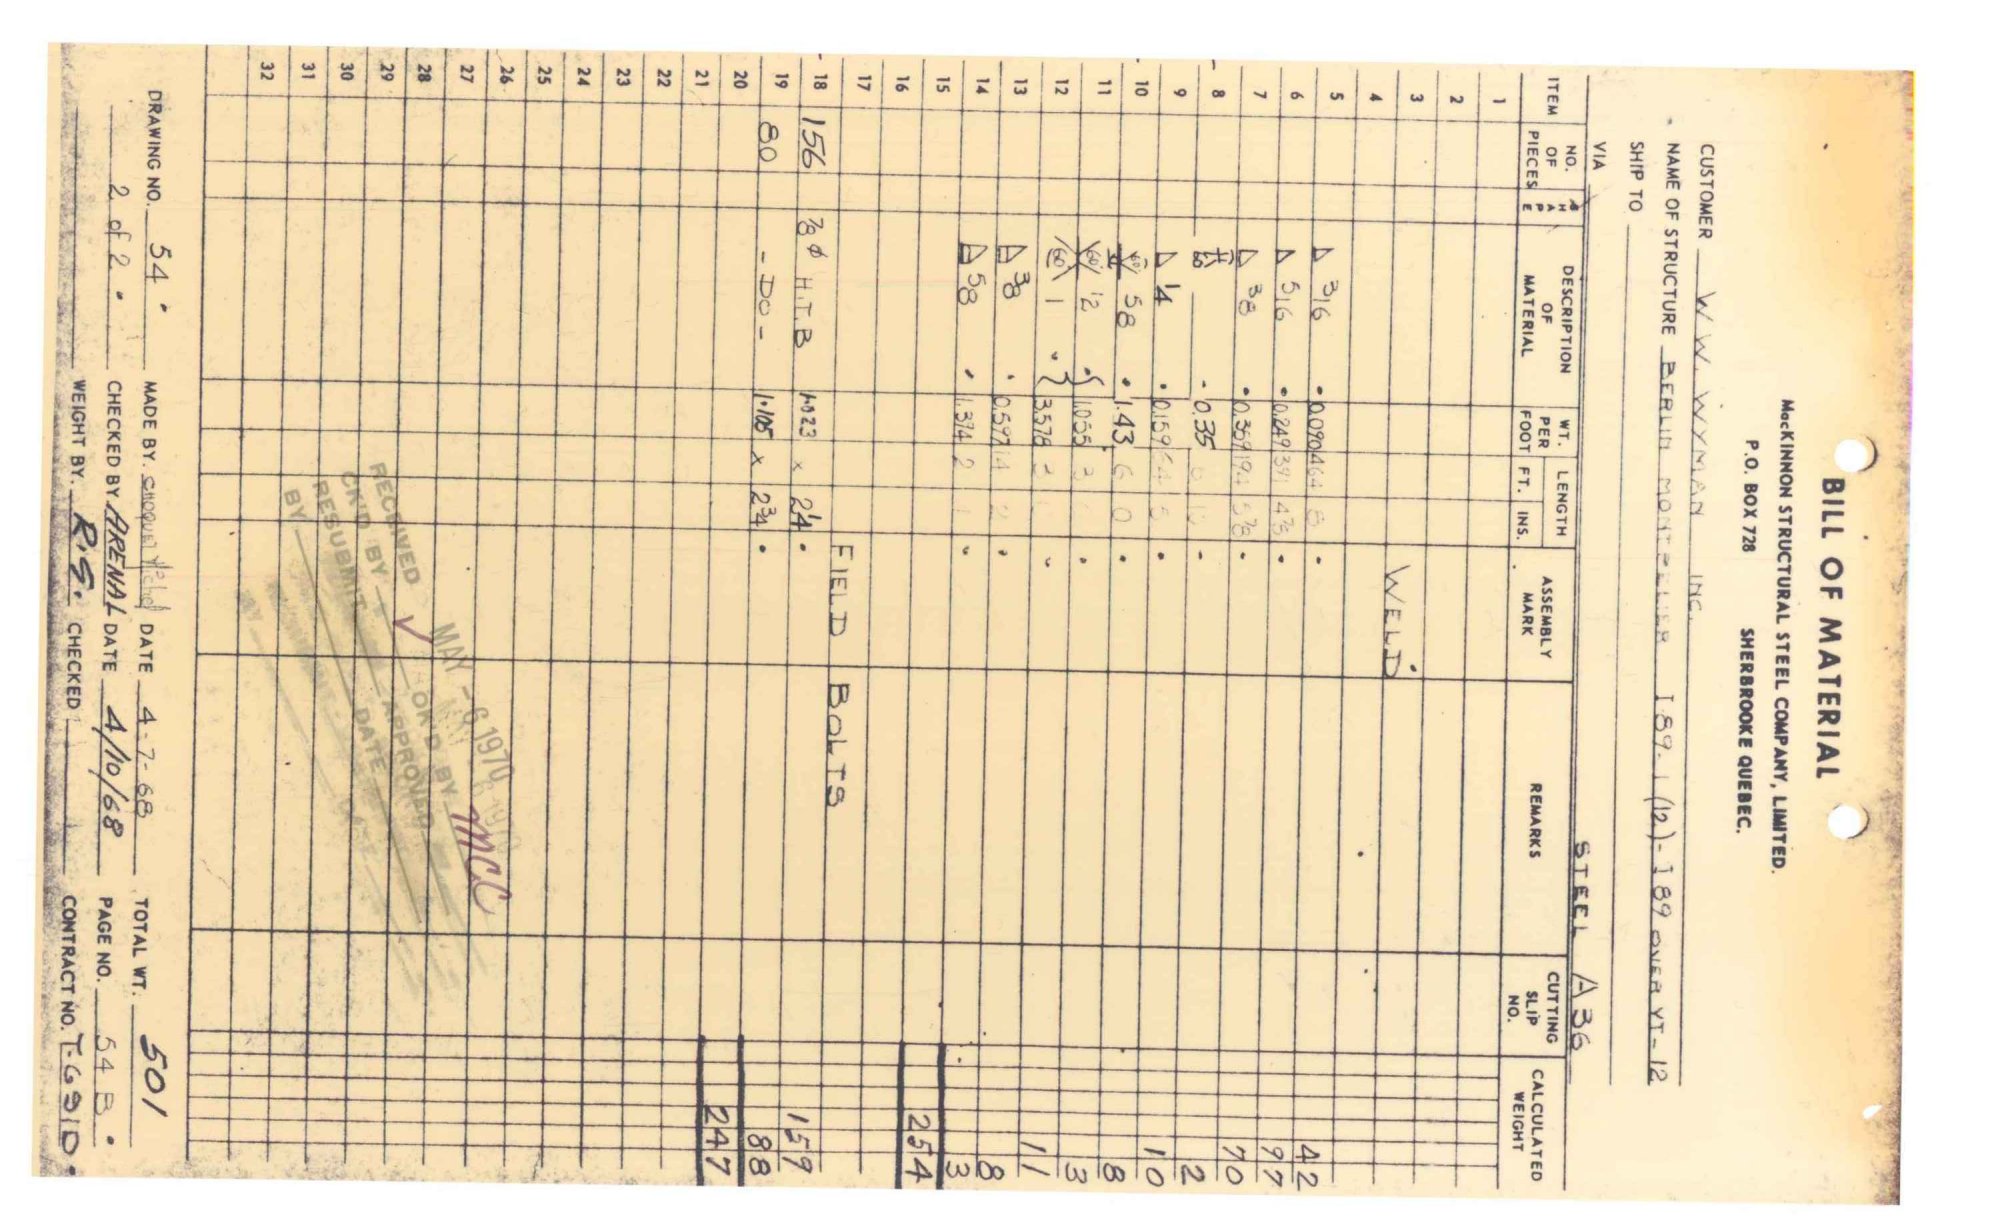 BILL OF MATERIAL
McKINNON STRUCTURAL STEEL COMPANY, LIMITED.
P.O. BOX 728 SHERBROOKE QUEBEC.
CUSTOMER W.W. WYMAN INC.
NAME OF STRUCTURE BERLIN MONTPELIER I 89-1(12)-I 89 OVER VT-12
SHIP TO
VIA
STEEL A36
ITEM NO. OF PIECES SHAPE DESCRIPTION OF MATERIAL WT. PER FOOT LENGTH FT. INS. ASSEMBLY MARK REMARKS CUTTING SLIP NO. CALCULATED WEIGHT
1
2
3
4 WELD
5 3/16 0.090 464 8 42
6 5/16 0.249 391 4 7/8 97
7 3/8 0.359 194 5 7/8 70
8 60 0.35 2
9 1/4 0.159 64 5 10
10 60 5/8 1.43 6 0 8
11 60 1/2 1.055 3 3
12 60 1 3.578 3 11
13 3/8 0.597 14 8
14 5/8 1.374 2 3
15 254
16
17 FIELD BOLTS
18 156 7/8 φ H.T.B 1.023 x 2 1/4 159
19 80 -DO- 1.105 x 2 3/4 88
20 247
21
22
23
24
25
26
27
28
29
30
31
32
MAY -6 1970
RECEIVED
CK'D BY OK'D BY MCC
RESUBMIT APPROVED
BY DATE
DRAWING NO. 54 MADE BY. DATE 4-7-68 TOTAL WT. 501
2 of 2 CHECKED BY ARENAL DATE 4/10/68 PAGE NO. 54 B
WEIGHT BY. R.S. CHECKED CONTRACT NO. T-691D